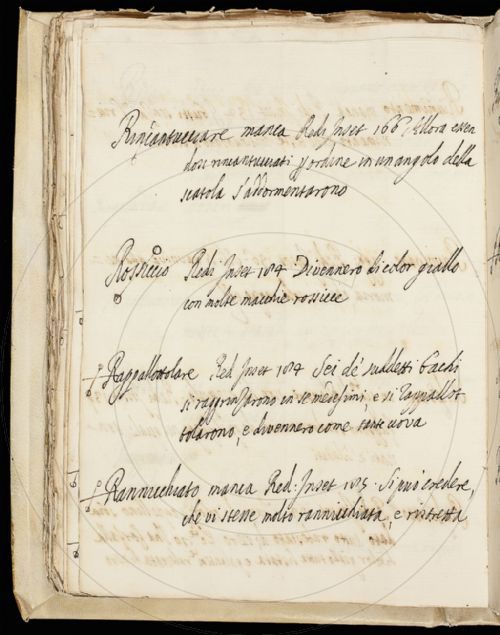 Rincantucciare manca Redi Inset 166 Allora essen
dosi rincantucciati p ordine in un angolo della
scatola s'addormentarono
Rossiccio Redi Inset 184 Divennero di color giallo
con molte macchie rossicce
Rappallottolare Red Inset 184 Sei de' suddetti bachi
si raggrinzarono in se medesimi, e si rappallot
tolarono, e divennero come tante uova
Rannicchiato manca Red: Inset 185. Si può credere,
che vi stesse molto rannicchiata, e ristretta